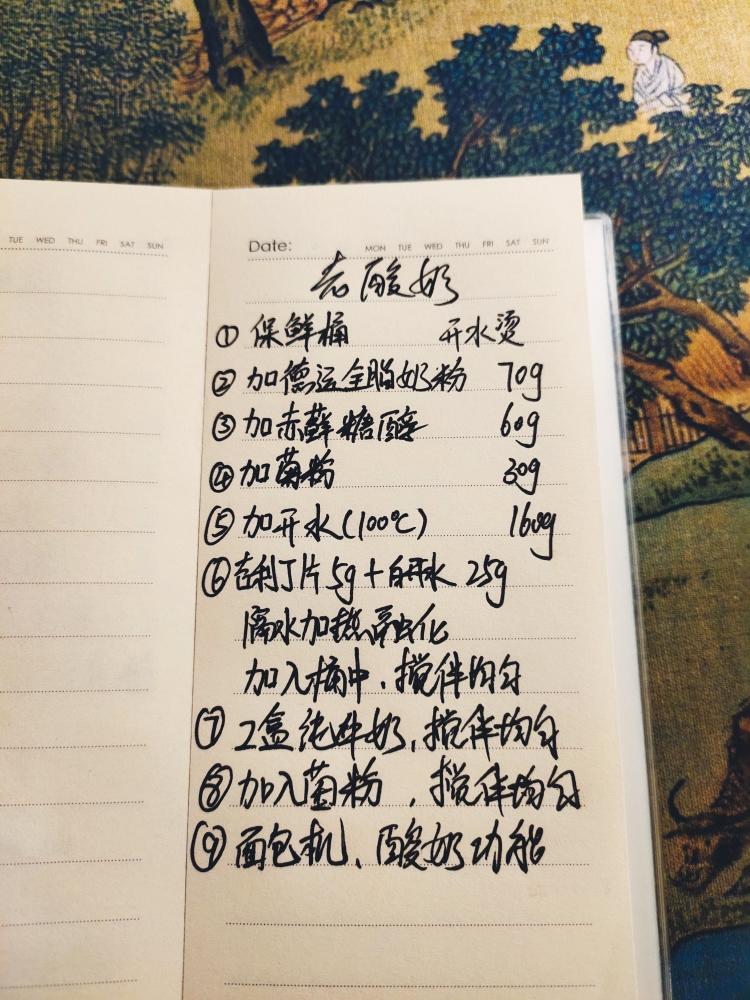 TUE WED THU FRI SAT SUN
Date: MON TUE WED THU FRI SAT SUN
老酸奶
① 保鲜桶 开水烫
② 加德运全脂奶粉 70g
③ 加赤藓糖醇 60g
④ 加菊粉 30g
⑤ 加开水(100℃) 160g
⑥ 吉利丁片5g+白开水 25g
隔水加热融化
加入桶中,搅拌均匀
⑦ 2盒纯牛奶,搅拌均匀
⑧ 加入菌粉,搅拌均匀
⑨ 面包机、酸奶功能